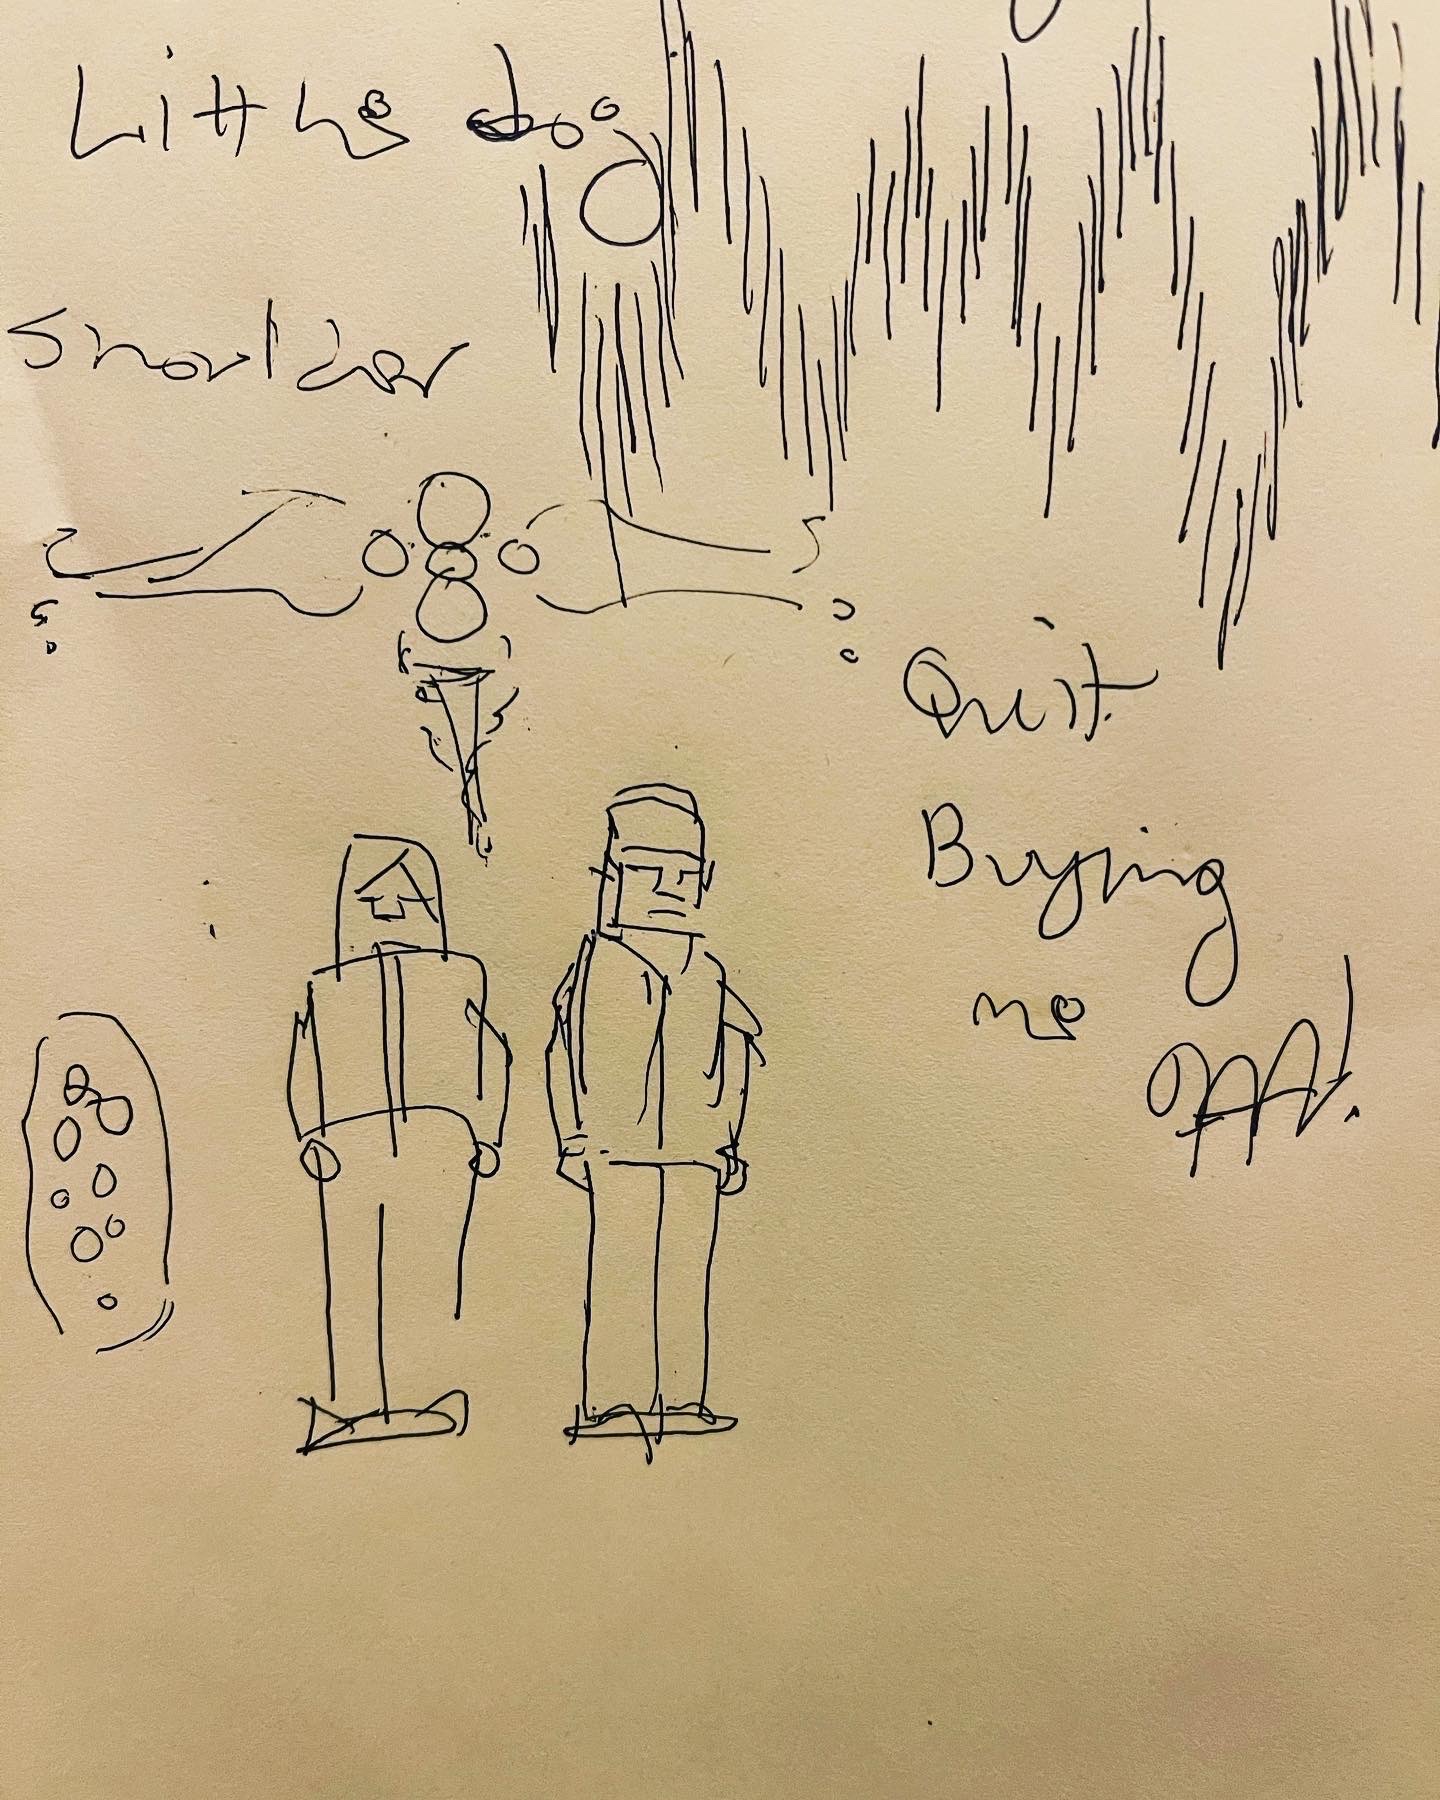 Little dog
Shoulder
Quit
Buying
me